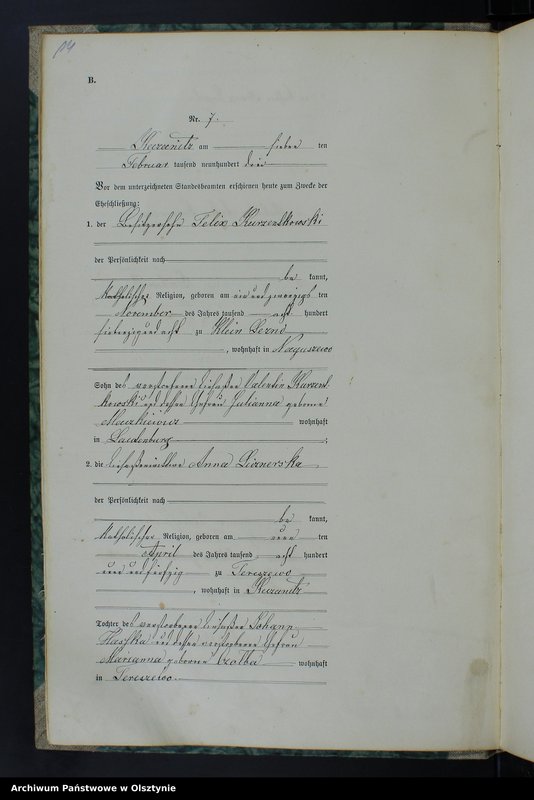 B.
Nr. 7.
Kazanitz am sieben ten
Februar tausend neunhundert drei
Vor dem unterzeichneten Standesbeamten erschienen heute zum Zwecke der
Eheschließung:
1. der Besitzersohn Felix Kurzentkowski
der Persönlichkeit nach
be kannt,
katholischer Religion, geboren am ein und zwanzigs ten
November des Jahres tausend acht hundert
siebenzig und acht zu Klein Lezno
, wohnhaft in Naguszewo
Sohn des verstorbenen Valentin Kurzent-
kowski und dessen Ehefrau Julianna geborene
wohnhaft
in Lautenburg ;
2. die Anna
der Persönlichkeit nach
be kannt,
katholischer Religion, geboren am ten
April des Jahres tausend acht hundert
und zu Tereszewo
, wohnhaft in Kazanitz
Tochter des verstorbenen Johann
und dessen verstorbenen Ehefrau
Marianna geborene wohnhaft
in Tereszewo
Archiwum Państwowe w Olsztynie